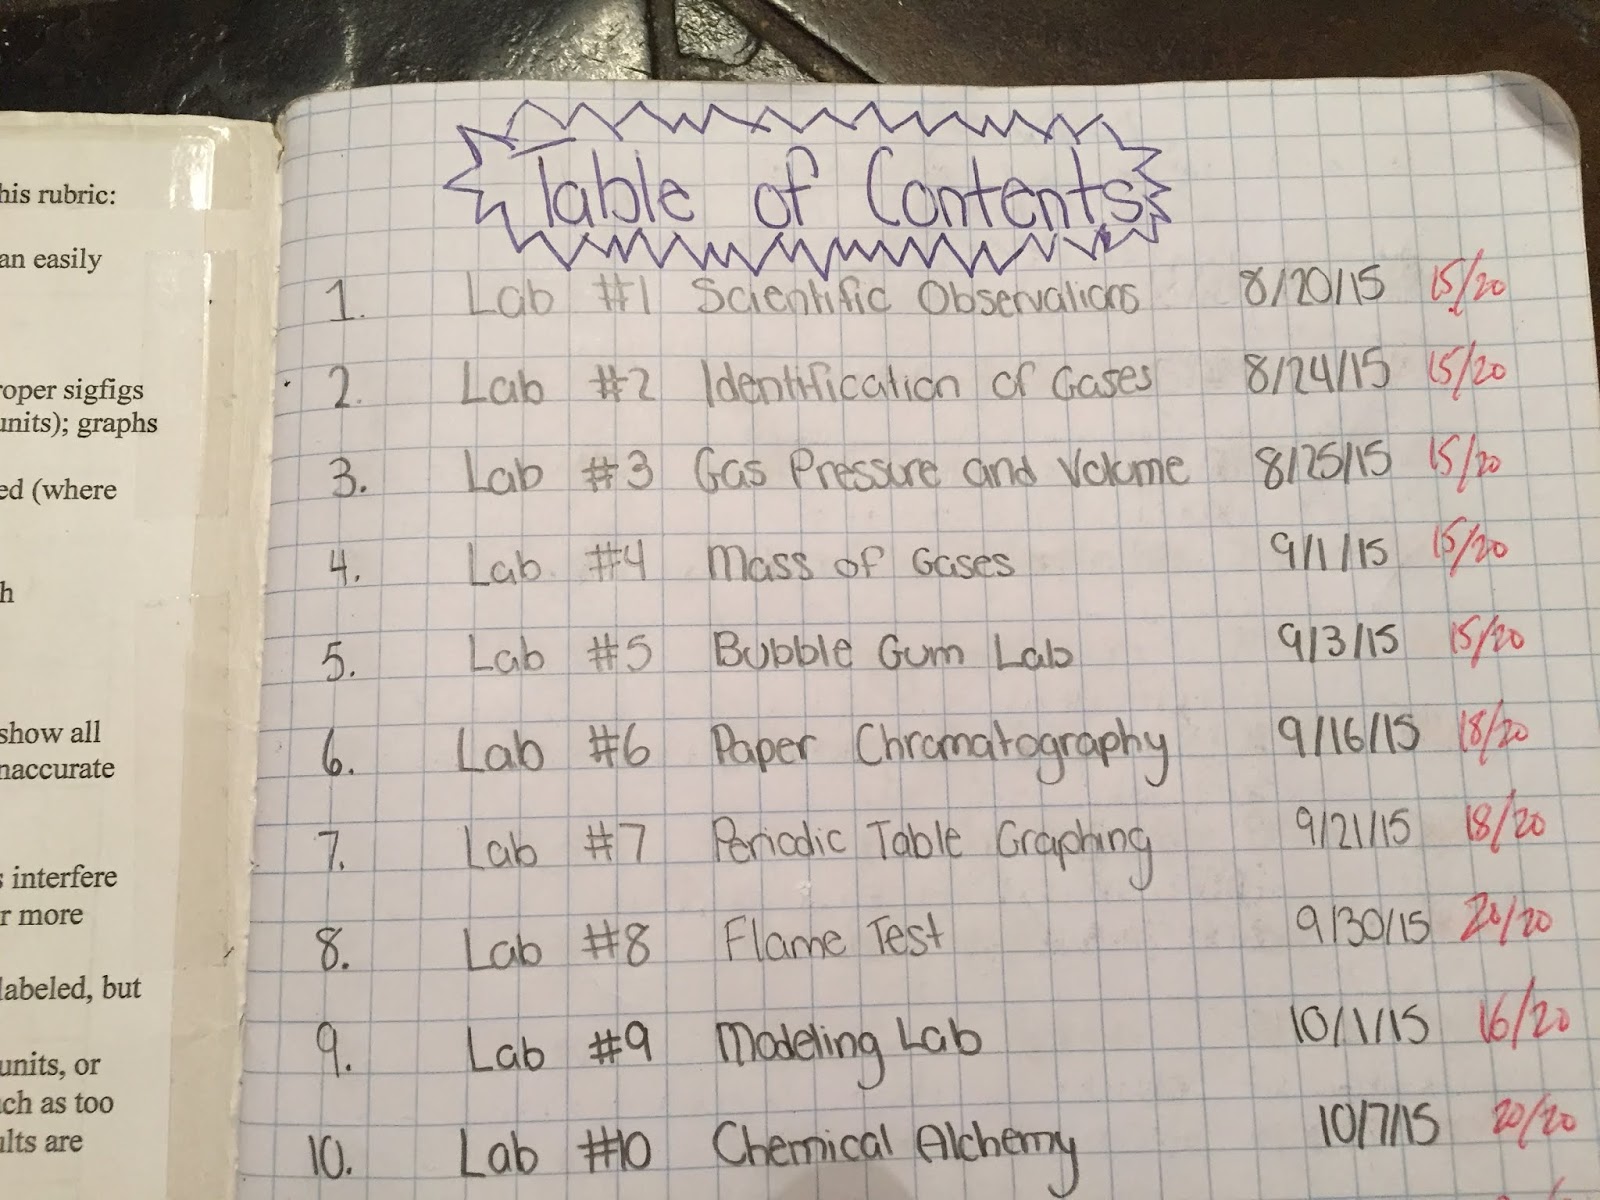 his rubric:
an easily
roper sigfigs
units); graphs
ed (where
h
show all
naccurate
s interfere
r more
labeled, but
units, or
uch as too
ults are
Table of Contents
1. Lab #1 Scientific Observations 8/20/15 15/20
2. Lab #2 Identification of Gases 8/24/15 15/20
3. Lab #3 Gas Pressure and Volume 8/25/15 15/20
4. Lab #4 Mass of Gases 9/1/15 15/20
5. Lab #5 Bubble Gum Lab 9/3/15 15/20
6. Lab #6 Paper Chromatography 9/16/15 18/20
7. Lab #7 Periodic Table Graphing 9/21/15 18/20
8. Lab #8 Flame Test 9/30/15 20/20
9. Lab #9 Modeling Lab 10/1/15 16/20
10. Lab #10 Chemical Alchemy 10/7/15 20/20